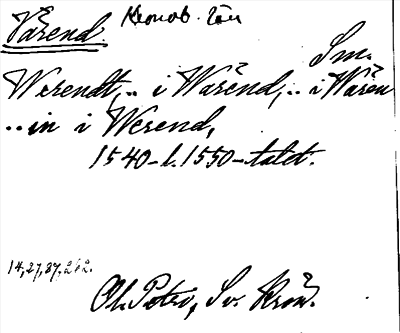 Värend. Kronob. län
Sm.
Werendt, .. i Wärend, .. i Wären
.. in i Werend,
1540- l. 1550-talet.
14, 27, 37, 262.
Ol. Petri, Sv. Krön.